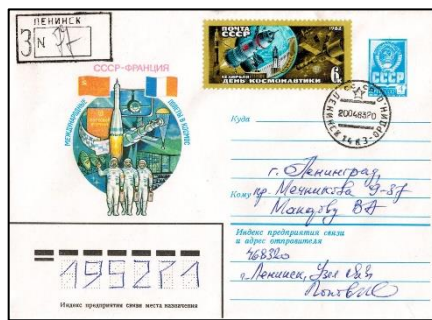 ЛЕНИНСК
З N 77
СССР-ФРАНЦИЯ
МЕЖДУНАРОДНЫЕ
ПОЛЕТЫ В КОСМОС
ПОЧТА
СССР
1982
12 АПРЕЛЯ
ДЕНЬ КОСМОНАВТИКИ
6к
СССР
ЛЕНИНСК
Куда
г. Ленинград,
Кому пр. Мечникова 9-87
Индекс предприятия связи
и адрес отправителя
468320
г. Ленинск, Узел связи
195271
Индекс предприятия связи места назначения